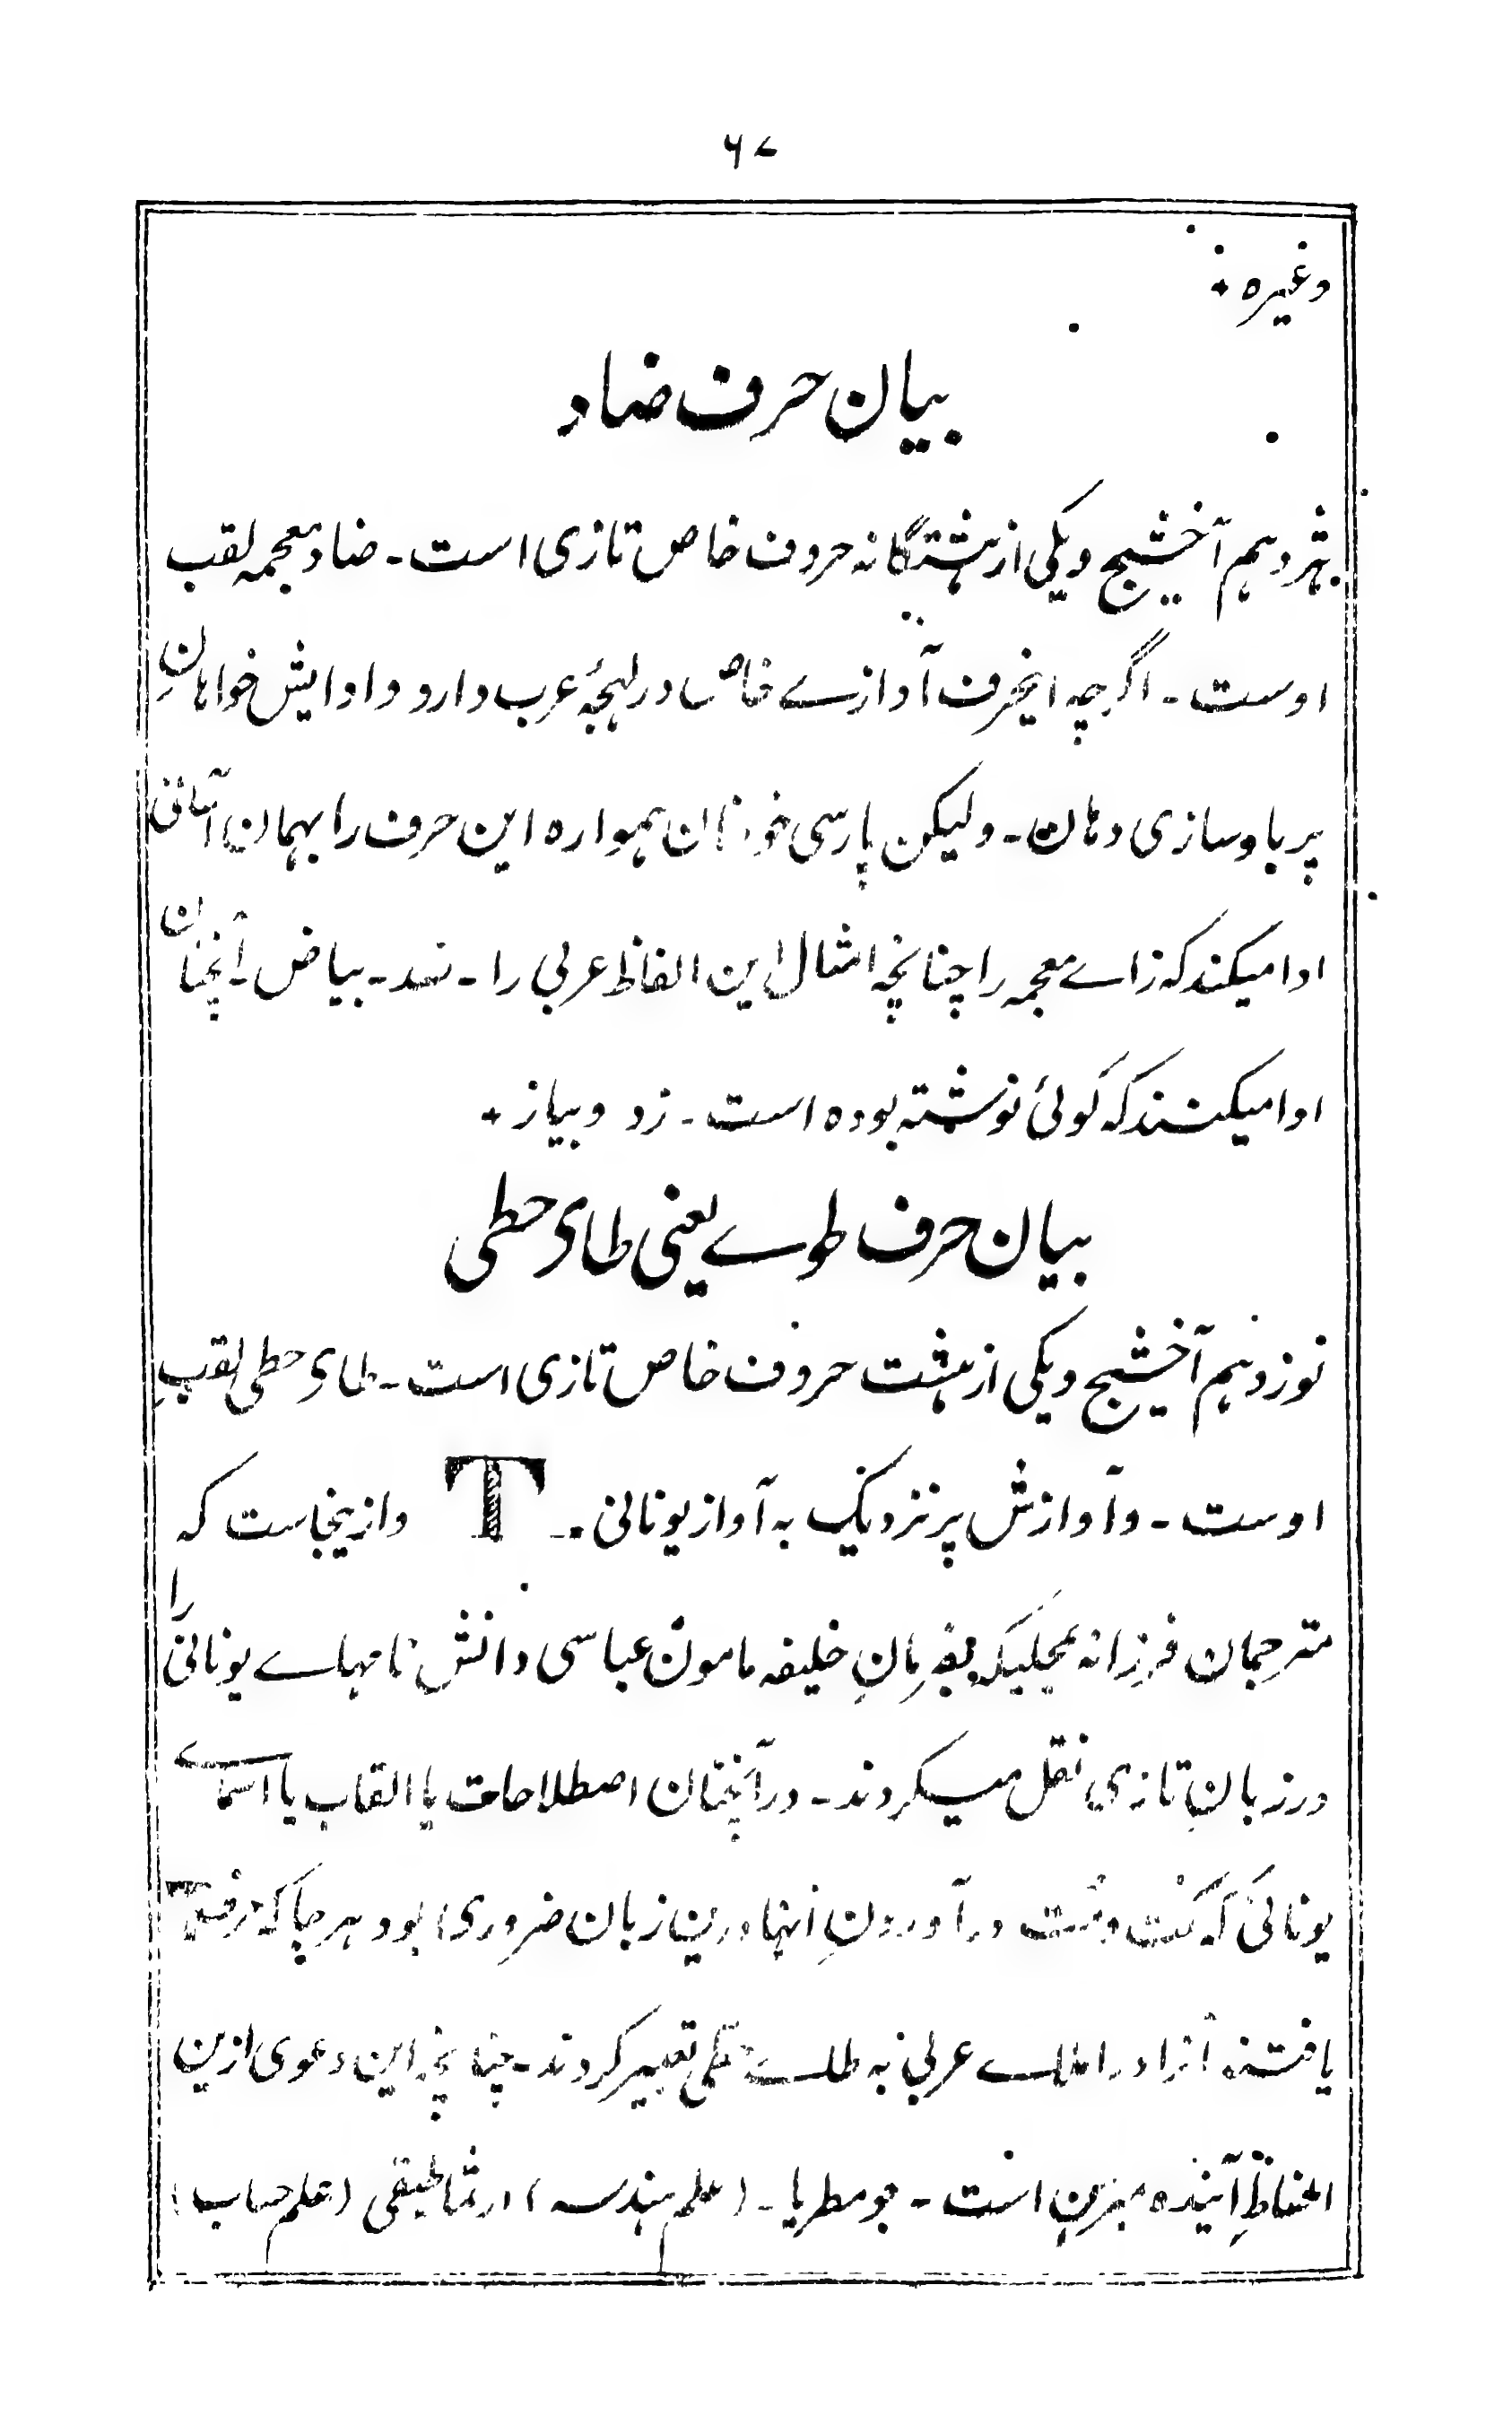 ۶۷
وغیرہ +
بیان حرف ضاد
ہژدہم آخشیج ویکی از ہشتگانہ حروف خاص تازی است ۔ ضاد معجمہ لقب
اوست ۔ اگرچہ اینحرف آوازے خاص در لہجۂ عرب دارد و ادایش خواہانِ
پر بادسازی دہان ۔ ولیکن پارسی خوانان ہموارہ این حرف را بہمان آسانی
ادا میکنند کہ زاے معجمہ را چنانچہ امثال این الفاظ عربی را ۔ ضد ۔ بیاض ۔ آنچنان
ادا میکنند کہ گوئی نوشتہ بودہ است ۔ زد وبیاز +
بیان حرف طوے یعنی طای حطی
نوزدہم آخشیج ویکی از ہشت حروف خاص تازی است ۔ طایِ حطی لقبِ
اوست ۔ وآوازش پر نزدیک بہ آواز یونانی ۔ T وازینجاست کہ
مترجمان فرزانہ بفرمانِ خلیفہ مامون عباسی دانش نامہاے یونانی را
در زبانِ تازی نقل میکردند ۔ در آنچنان اصطلاحات یا القاب یا اسماے
یونانی کہ درآوردنِ اینہا درین زبان ضروری بود ہرجا کہ حرف T
یافتند آنرا در املاے عربی بہ طاے حطی تعبیر کردند ۔ چنانچہ این دعوی ازین
الفاظِ آیندہ مبرہن است ۔ جومطریا ۔ (علم ہندسہ) ارثماطیقی (علم حساب)